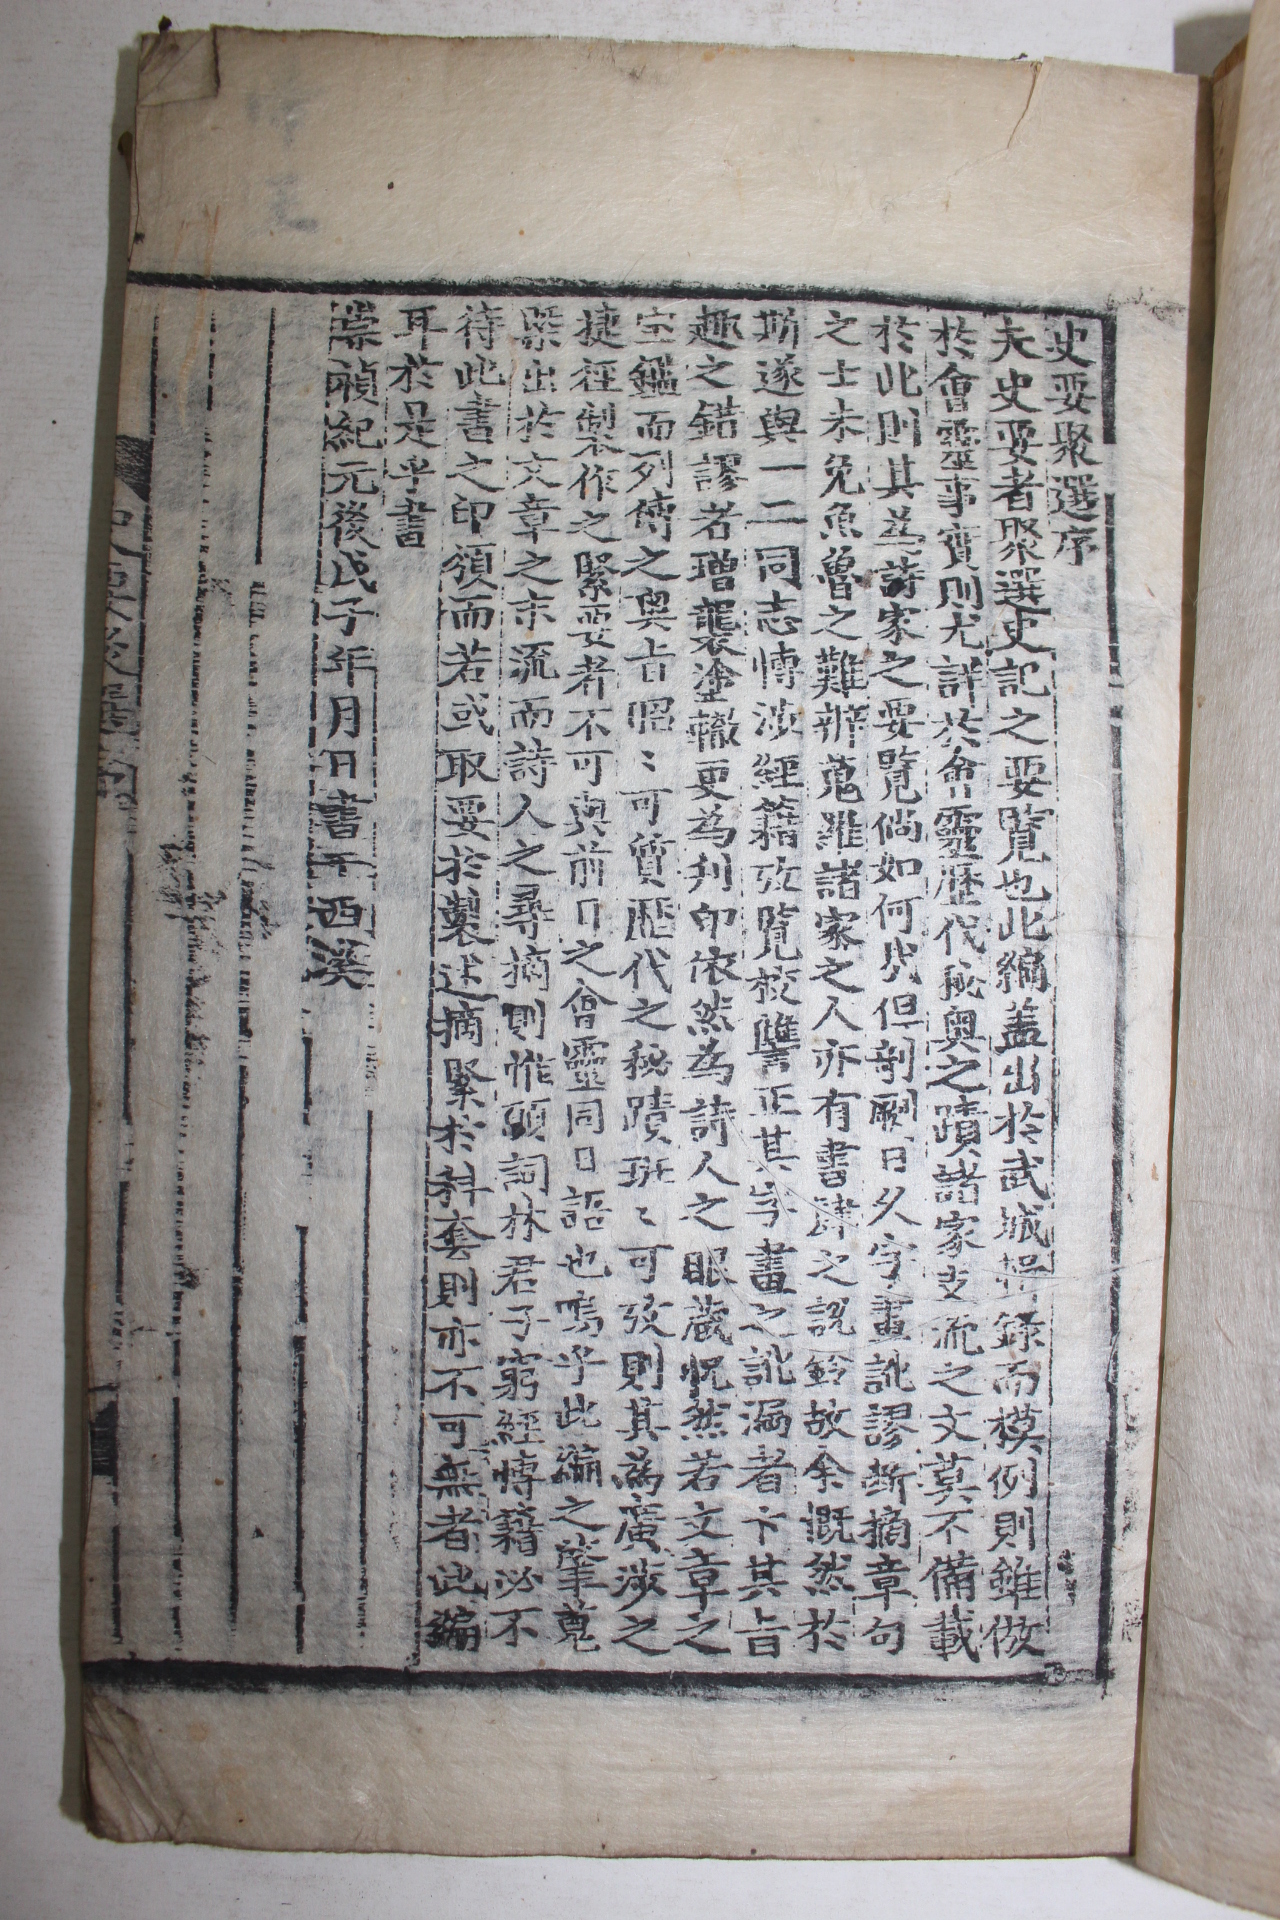 史要聚選序
夫史要者聚選史記之要覽也此編盖出於武城抄錄而模例則雖倣
於會靈事實則尤詳於會靈歷代秘奧之蹟諸家支流之文莫不備載
於此則其為詩家之要覽倘如何哉但剞劂日久字畫訛謬斯摘章句
之士未免魚魯之難辨蒐羅諸家之人亦有書肆之說鈴故余慨然於
斯遂與一二同志博涉經籍攷覽校讎言正其字畫之訛漏者卞其旨
趣之錯謬者璔襲塗轍更為刋印依然為詩人之眼藏怳然若文章之
宝鑑而列傳之奧旨昭〻可質歷代之秘蹟班〻可攷則其為廣涉之
捷徑製作之緊要者不可與前日之會靈同日語也嗚乎此編之肇蒐
槩出於文章之末流而詩人之尋摘則惟頭詞林君子窮經博籍必不
待此書之印頒而若或取要於製述摘緊於科套則亦不可無者此編
耳於是乎書
崇禎紀元後戊子年月日書于西溪